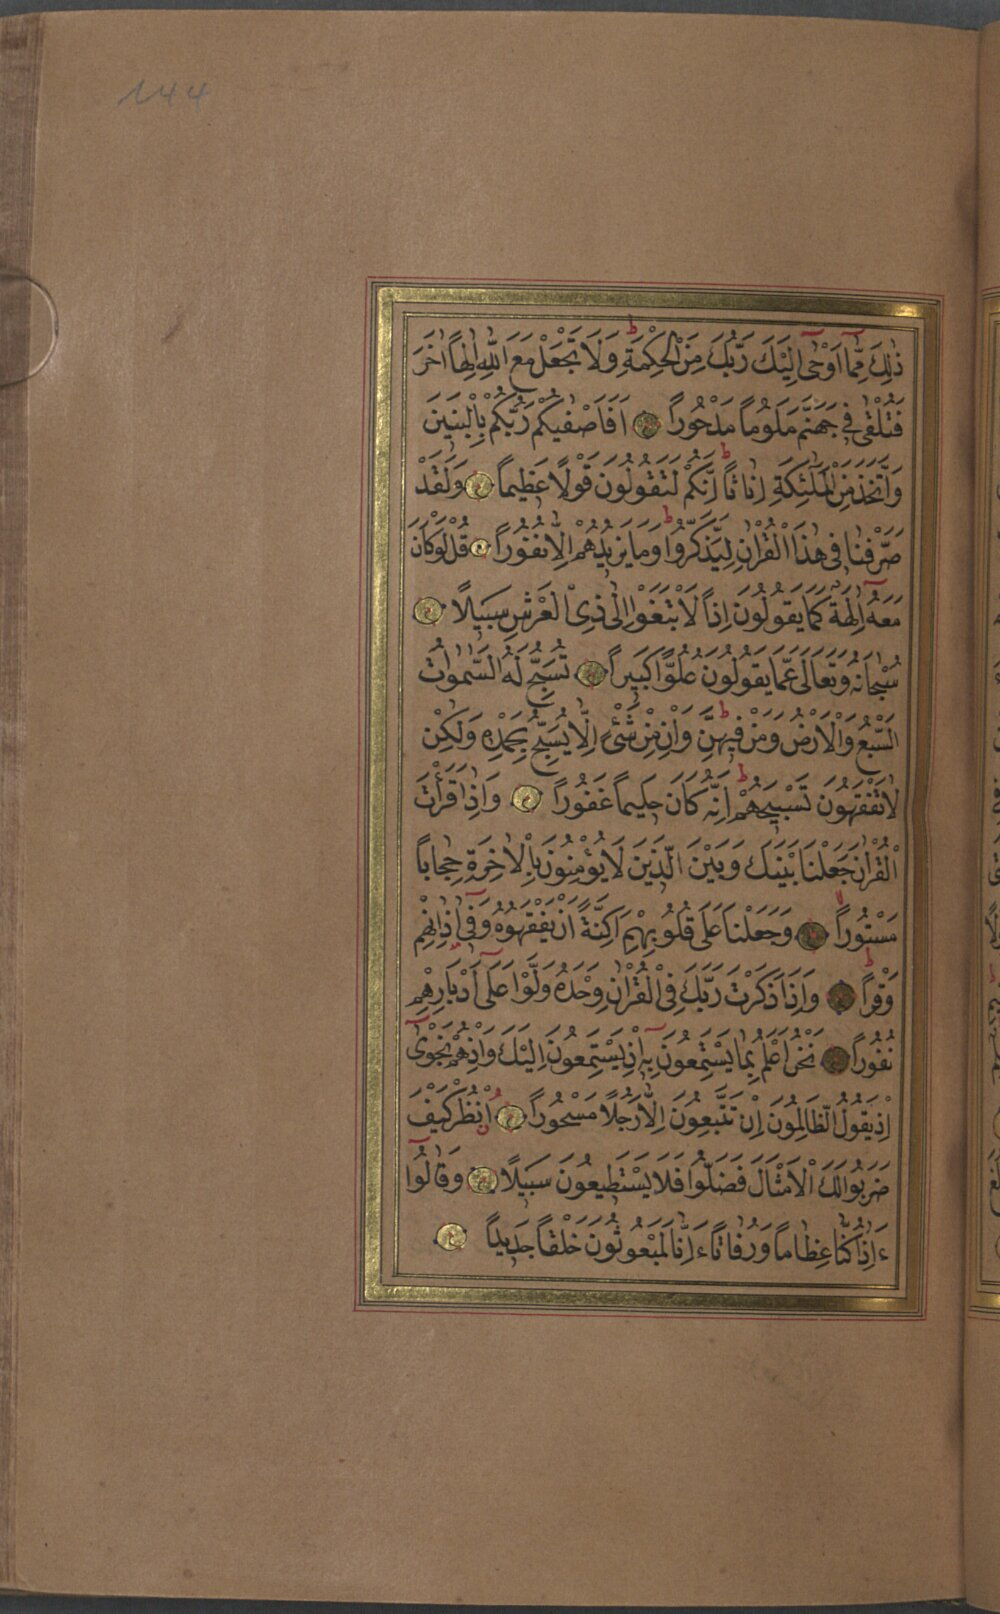 144
ذٰلِكَ مِمَّٓا اَوْحٰٓى اِلَيْكَ رَبُّكَ مِنَ الْحِكْمَةِ ط وَلَا تَجْعَلْ مَعَ اللّٰهِ اِلٰهاً اٰخَرَ
فَتُلْقٰى فِي جَهَنَّمَ مَلُوماً مَدْحُوراً اَفَاَصْفٰيكُمْ رَبُّكُمْ بِالْبَنِينَ
وَاتَّخَذَ مِنَ الْمَلٰئِكَةِ اِنَاثاً ط اِنَّكُمْ لَتَقُولُونَ قَوْلًا عَظِيماً وَلَقَدْ
صَرَّفْنَا فِي هٰذَا الْقُرْاٰنِ لِيَذَّكَّرُوا ط وَمَا يَزِيدُهُمْ اِلَّا نُفُوراً قُلْ لَوْ كَانَ
مَعَهُٓ اٰلِهَةٌ كَمَا يَقُولُونَ اِذاً لَابْتَغَوْا اِلٰى ذِي الْعَرْشِ سَبِيلًا
سُبْحَانَهُ وَتَعَالٰى عَمَّا يَقُولُونَ عُلُوًّا كَبِيراً تُسَبِّحُ لَهُ السَّمٰوَاتُ
السَّبْعُ وَالْاَرْضُ وَمَنْ فِيهِنَّ ط وَاِنْ مِنْ شَيْءٍ اِلَّا يُسَبِّحُ بِحَمْدِهِ وَلٰكِنْ
لَا تَفْقَهُونَ تَسْبِيحَهُمْ ط اِنَّهُ كَانَ حَلِيماً غَفُوراً وَاِذَا قَرَأْتَ
الْقُرْاٰنَ جَعَلْنَا بَيْنَكَ وَبَيْنَ الَّذِينَ لَا يُؤْمِنُونَ بِالْاٰخِرَةِ حِجَاباً
مَسْتُوراً لا وَجَعَلْنَا عَلٰى قُلُوبِهِمْ اَكِنَّةً اَنْ يَفْقَهُوهُ وَفِٓي اٰذَانِهِمْ
وَقْراً ط وَاِذَا ذَكَرْتَ رَبَّكَ فِي الْقُرْاٰنِ وَحْدَهُ وَلَّوْا عَلٰٓى اَدْبَارِهِمْ
نُفُوراً نَحْنُ اَعْلَمُ بِمَا يَسْتَمِعُونَ بِهِٓ اِذْ يَسْتَمِعُونَ اِلَيْكَ وَاِذْ هُمْ نَجْوٰٓى
اِذْ يَقُولُ الظَّالِمُونَ اِنْ تَتَّبِعُونَ اِلَّا رَجُلًا مَسْحُوراً اُنْظُرْ كَيْفَ
ضَرَبُوا لَكَ الْاَمْثَالَ فَضَلُّوا فَلَا يَسْتَطِيعُونَ سَبِيلًا وَقَالُٓوا
ءَاِذَا كُنَّا عِظَاماً وَرُفَاتاً ءَاِنَّا لَمَبْعُوثُونَ خَلْقاً جَدِيداً